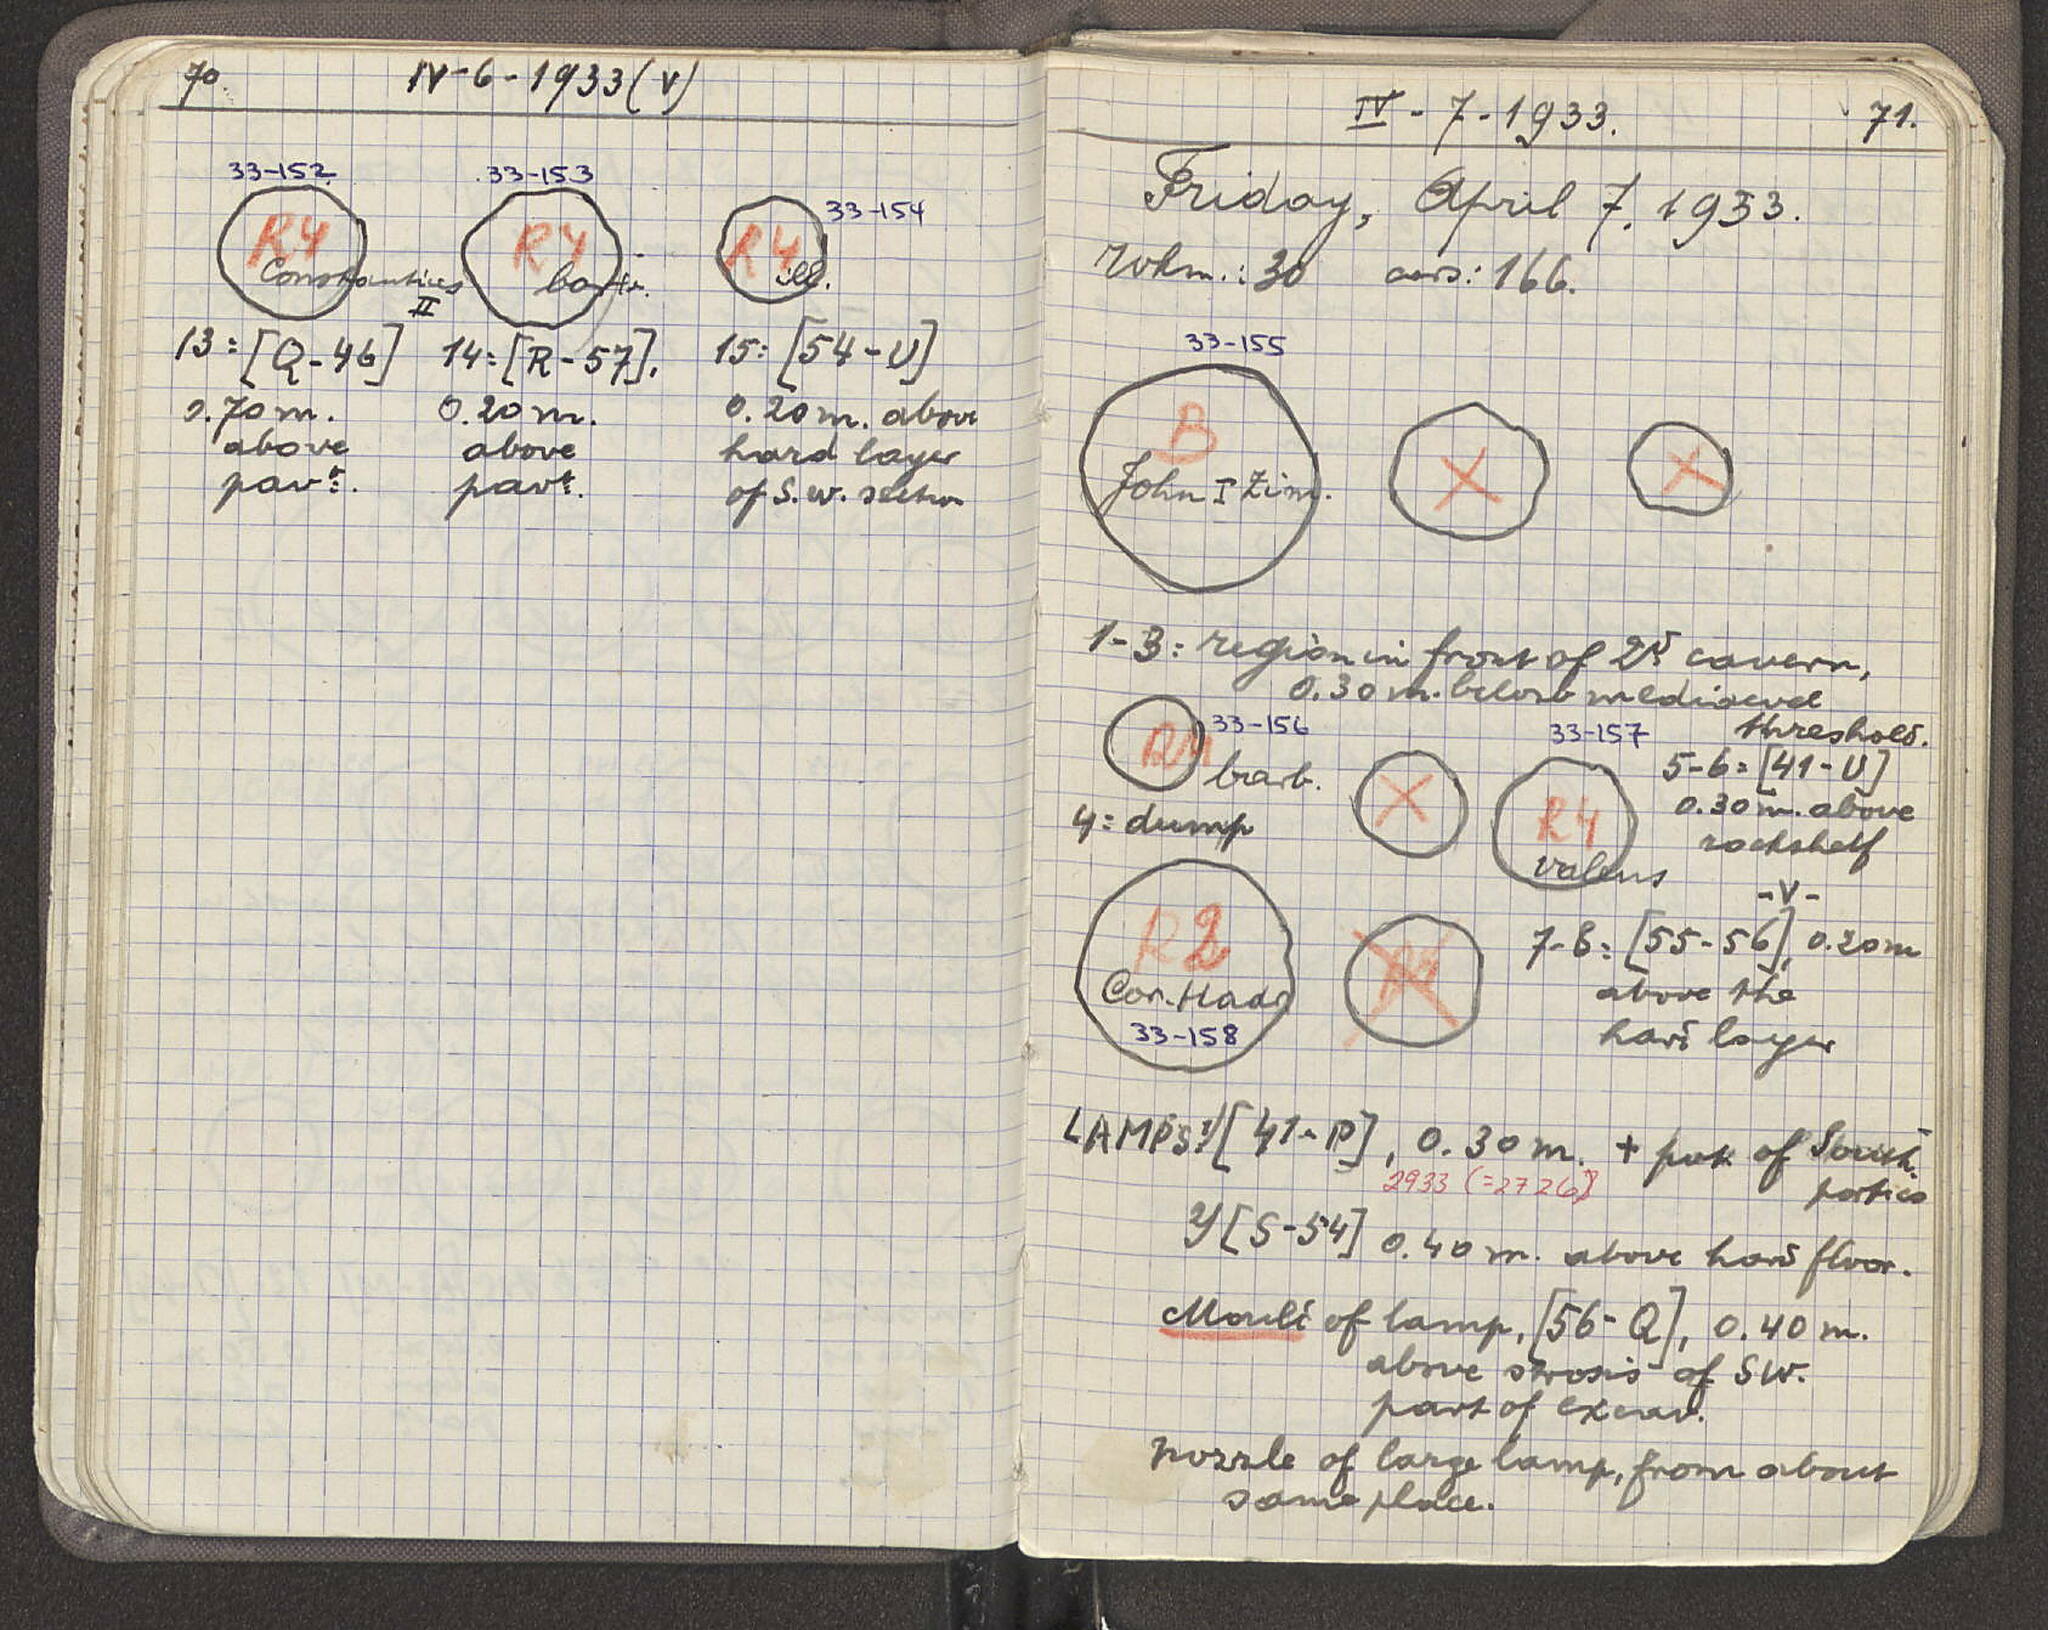 70.
IV-6-1933 (V)
33-152 33-153 33-154
R4 R4 R4
Constantius II barb. ill.
13=[Q-46] 14=[R-57]. 15=[54-U]
0.70m. 0.20m. 0.20m. above
above above hard layer
pavt. pavt. of S.W. section
IV-7-1933. 71.
Friday, April 7, 1933.
wkm.: 30 cars: 166.
33-155
B X X
John I Zim.
1-3: region in front of 2d cavern,
0.30m. below mediaeval
threshold.
33-156 33-157
R4 X R4
barb. Valens
4= dump
5-6=[41-U]
0.30m. above
rockshelf
-V-
R2 R4
Cor. Hadr
33-158
7-8= [55-56], 0.20m
above the
hard layer
LAMPS: [41-P], 0.30m. + pav. of South.
portico
2933 (=2726)
Y[S-54] 0.40m. above hard floor.
Mould of lamp, [56-Q], 0.40m.
above strosis of SW.
part of excav.
Nozzle of large lamp, from about
same place.